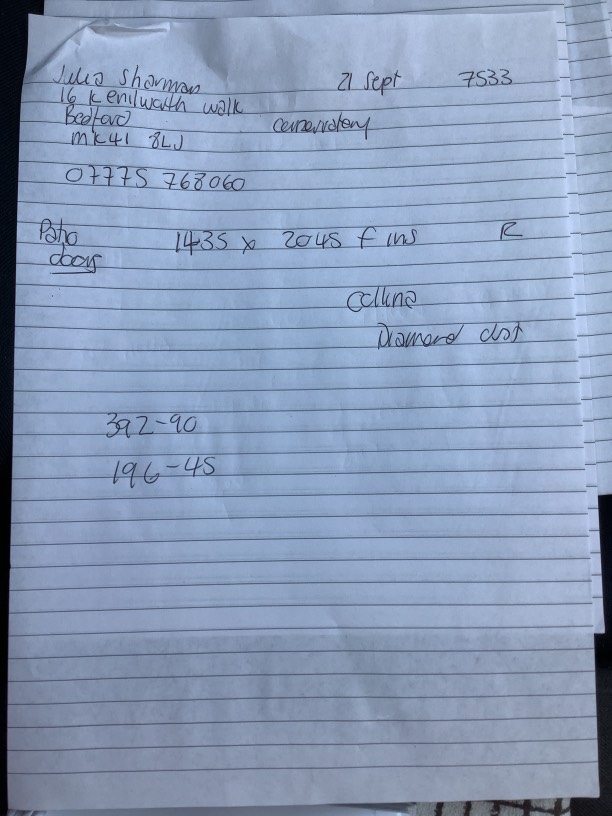 Julia Sharman 21 Sept 7533
16 Kenilworth Walk
Bedford Conservatory
MK41 8LJ
07775 768060
Patio 1435 x 2045 f ins R
doors
Collina
Diamond dot
392-90
196-45